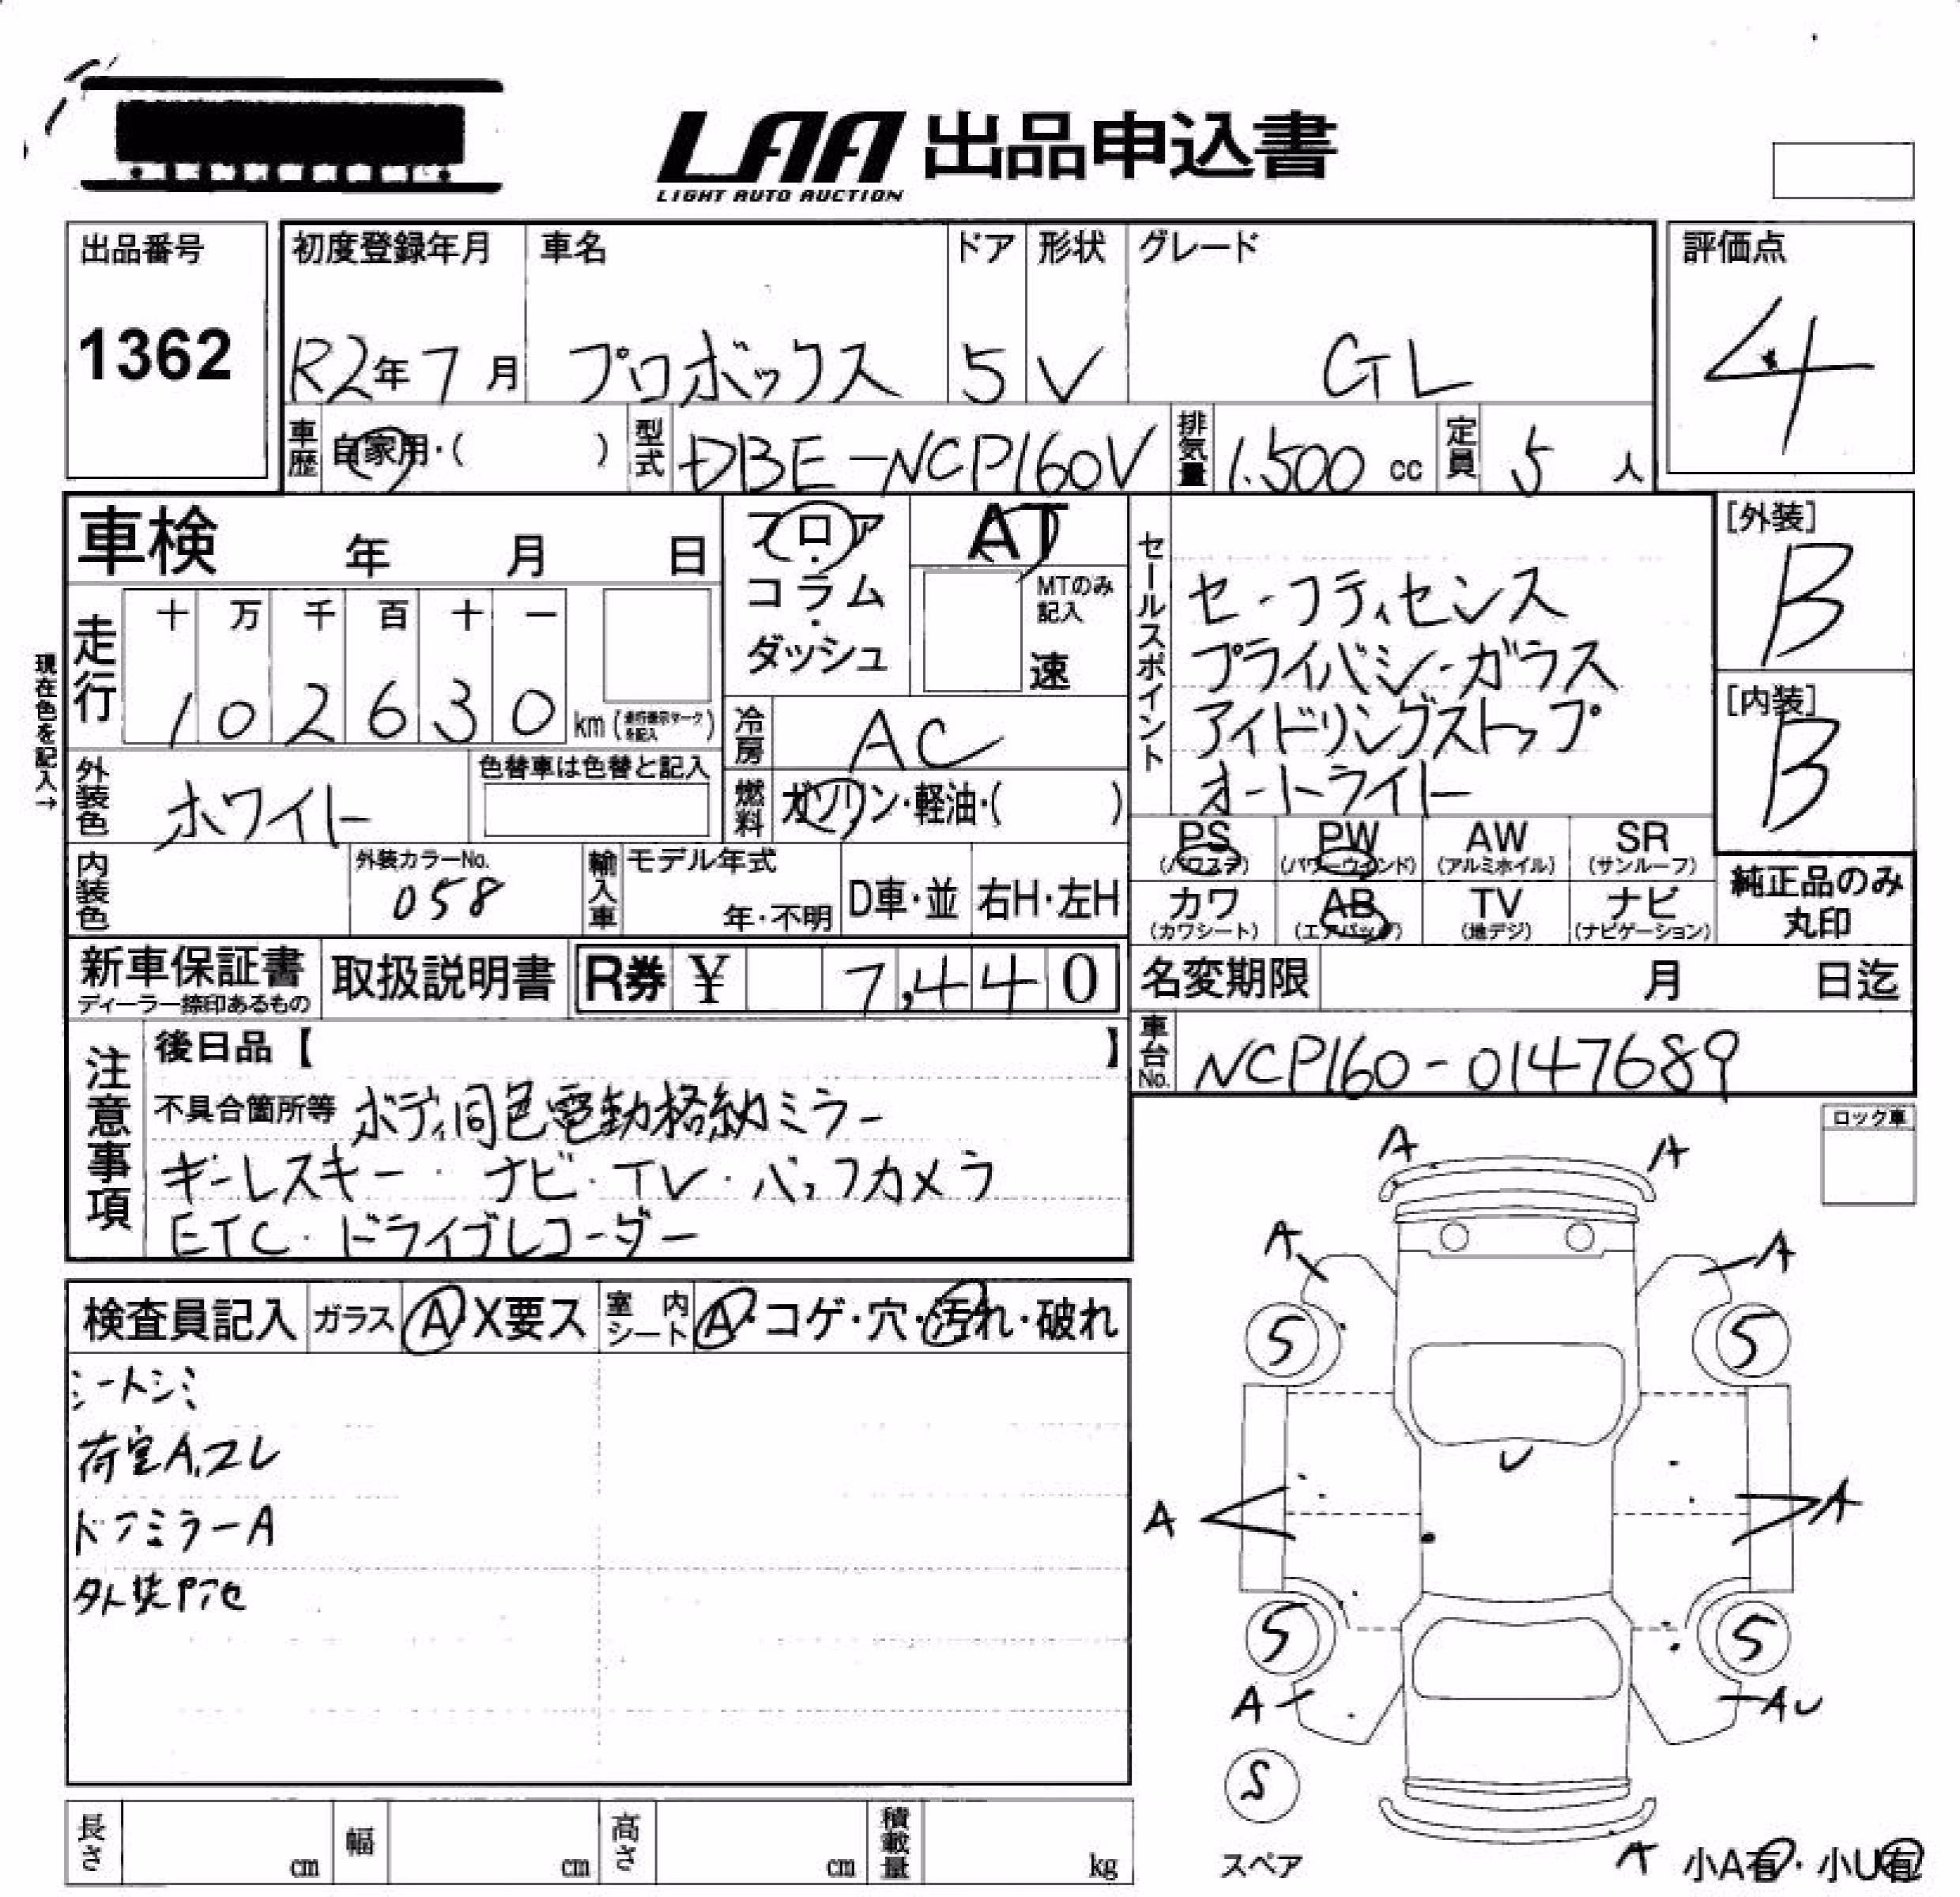 LAA 出品申込書
LIGHT AUTO AUCTION
出品番号
1362
初度登録年月
R2年7月
車名
プロボックス
ドア
5
形状
V
グレード
GL
評価点
4
車歴 自家用・( )
型式 DBE-NCP160V
排気量 1.500 cc
定員 5 人
車検 年 月 日
フロア・コラム・ダッシュ
AT
MTのみ記入
速
セールスポイント
セーフティセンス
プライバシーガラス
アイドリングストップ
オートライト
[外装]
B
[内装]
B
現在色を記入→
走行
十 万 千 百 十 一
1 0 2 6 3 0 km (走行表示マークを記入)
冷房 AC
外装色 ホワイト
色替車は色替と記入
燃料 ガソリン・軽油・( )
PS (パワステ)
PW (パワーウィンド)
AW (アルミホイル)
SR (サンルーフ)
カワ (カワシート)
AB (エアバッグ)
TV (地デジ)
ナビ (ナビゲーション)
純正品のみ
丸印
内装色
外装カラーNo.
058
輸入車
モデル年式
年・不明
D車・並
右H・左H
新車保証書
ディーラー捺印あるもの
取扱説明書
R券 ¥ 7,440
名変期限 月 日迄
車台No. NCP160-0147689
注意事項
後日品【 】
不具合箇所等 ボディ同色電動格納ミラー
キーレスキー・ナビ・TV・バックカメラ
ETC・ドライブレコーダー
ロック車
検査員記入
ガラス A X要ス
室内シート A・コゲ・穴・汚れ・破れ
シートシミ
荷室A,コレ
ドアミラーA
A A
A A
5 5
U
A A
5 5
A AU
S
スペア
A 小A有・小U有
長さ cm
幅 cm
高さ cm
積載量 kg